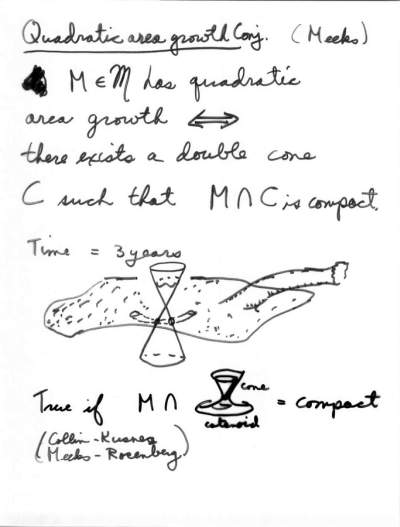 Quadratic area growth Conj. (Meeks)
M ∈ M has quadratic
area growth ⟺
there exists a double cone
C such that M ∩ C is compact.
Time = 3 years
True if M ∩ = compact
cone
catenoid
(Collin-Kusner
Meeks-Rosenberg)